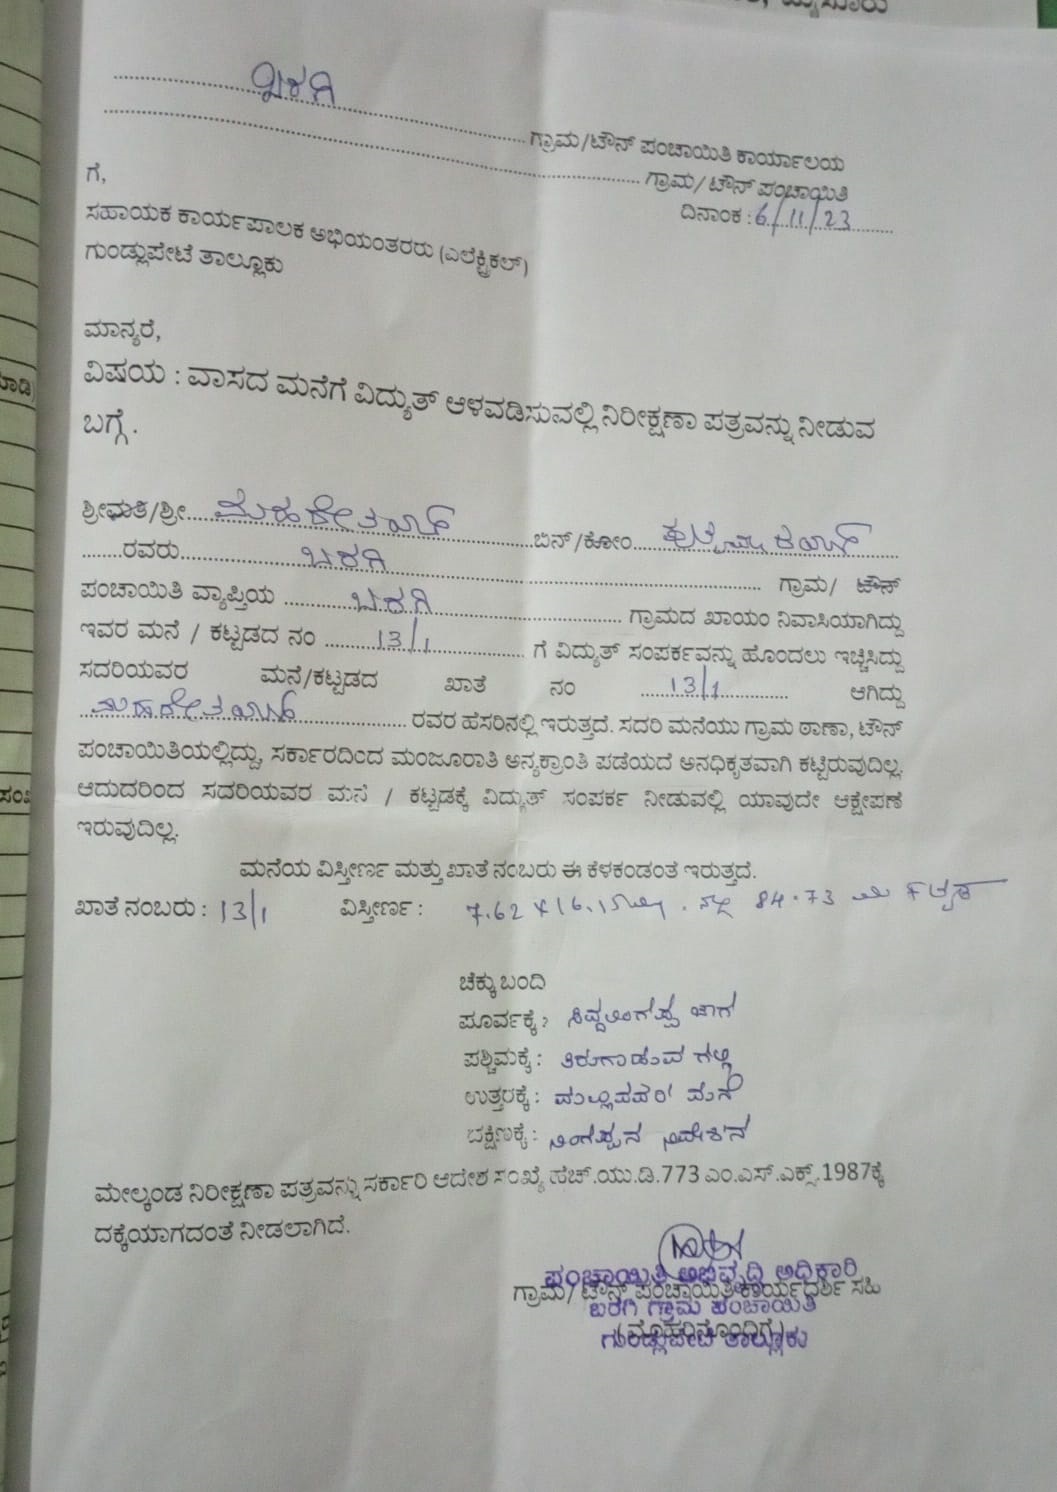 ಬರಗಿ
ಗ್ರಾಮ/ಟೌನ್ ಪಂಚಾಯಿತಿ ಕಾರ್ಯಾಲಯ
ಗ್ರಾಮ/ ಟೌನ್ ಪಂಚಾಯಿತಿ
ದಿನಾಂಕ : 6/11/23
ಗೆ,
ಸಹಾಯಕ ಕಾರ್ಯಪಾಲಕ ಅಭಿಯಂತರರು (ಎಲೆಕ್ಟ್ರಿಕಲ್)
ಗುಂಡ್ಲುಪೇಟೆ ತಾಲ್ಲೂಕು
ಮಾನ್ಯರೆ,
ವಿಷಯ : ವಾಸದ ಮನೆಗೆ ವಿದ್ಯುತ್ ಆಳವಡಿಸುವಲ್ಲಿ ನಿರೀಕ್ಷಣಾ ಪತ್ರವನ್ನು ನೀಡುವ
ಬಗ್ಗೆ.
ಶ್ರೀಮತಿ/ಶ್ರೀ ಬಿನ್/ಕೋಂ
ರವರು ಬರಗಿ ಗ್ರಾಮ/ ಟೌನ್
ಪಂಚಾಯಿತಿ ವ್ಯಾಪ್ತಿಯ ಬರಗಿ ಗ್ರಾಮದ ಖಾಯಂ ನಿವಾಸಿಯಾಗಿದ್ದು
ಇವರ ಮನೆ / ಕಟ್ಟಡದ ನಂ 13/1 ಗೆ ವಿದ್ಯುತ್ ಸಂಪರ್ಕವನ್ನು ಹೊಂದಲು ಇಚ್ಚಿಸಿದ್ದು
ಸದರಿಯವರ ಮನೆ/ಕಟ್ಟಡದ ಖಾತೆ ನಂ 13/1 ಆಗಿದ್ದು
ರವರ ಹೆಸರಿನಲ್ಲಿ ಇರುತ್ತದೆ. ಸದರಿ ಮನೆಯು ಗ್ರಾಮ ಠಾಣಾ, ಟೌನ್
ಪಂಚಾಯಿತಿಯಲ್ಲಿದ್ದು, ಸರ್ಕಾರದಿಂದ ಮಂಜೂರಾತಿ ಅನ್ಯಕ್ರಾಂತಿ ಪಡೆಯದೆ ಅನಧಿಕೃತವಾಗಿ ಕಟ್ಟಿರುವುದಿಲ್ಲ.
ಆದುದರಿಂದ ಸದರಿಯವರ ಮನೆ / ಕಟ್ಟಡಕ್ಕೆ ವಿದ್ಯುತ್ ಸಂಪರ್ಕ ನೀಡುವಲ್ಲಿ ಯಾವುದೇ ಆಕ್ಷೇಪಣೆ
ಇರುವುದಿಲ್ಲ.
ಮನೆಯ ವಿಸ್ತೀರ್ಣ ಮತ್ತು ಖಾತೆ ನಂಬರು ಈ ಕೆಳಕಂಡಂತೆ ಇರುತ್ತದೆ.
ಖಾತೆ ನಂಬರು : 13/1 ವಿಸ್ತೀರ್ಣ : 7.62 x 16.15 84.73
ಚೆಕ್ಕು ಬಂದಿ
ಪೂರ್ವಕ್ಕೆ : ಸಿದ್ದಲಿಂಗಪ್ಪ ಜಾಗ
ಪಶ್ಚಿಮಕ್ಕೆ : ತಿರುಗಾಡುವ ಗಲ್ಲಿ
ಉತ್ತರಕ್ಕೆ : ಮನೆ
ದಕ್ಷಿಣಕ್ಕೆ : ಲಿಂಗಪ್ಪನ ನಿವೇಶನ
ಮೇಲ್ಕಂಡ ನಿರೀಕ್ಷಣಾ ಪತ್ರವನ್ನು ಸರ್ಕಾರಿ ಆದೇಶ ಸಂಖ್ಯೆ ಹೆಚ್.ಯು.ಡಿ.773 ಎಂ.ಎಸ್.ಎಕ್ಸ್.1987ಕ್ಕೆ
ದಕ್ಕೆಯಾಗದಂತೆ ನೀಡಲಾಗಿದೆ.
ಪಂಚಾಯಿತಿ ಅಭಿವೃದ್ಧಿ ಅಧಿಕಾರಿ
ಗ್ರಾಮ/ ಟೌನ್ ಪಂಚಾಯಿತಿ ಕಾರ್ಯದರ್ಶಿ ಸಹಿ
ಬರಗಿ ಗ್ರಾಮ ಪಂಚಾಯಿತಿ
(ಮೊಹರಿನೊಂದಿಗೆ)
ಗುಂಡ್ಲುಪೇಟೆ ತಾಲ್ಲೂಕು